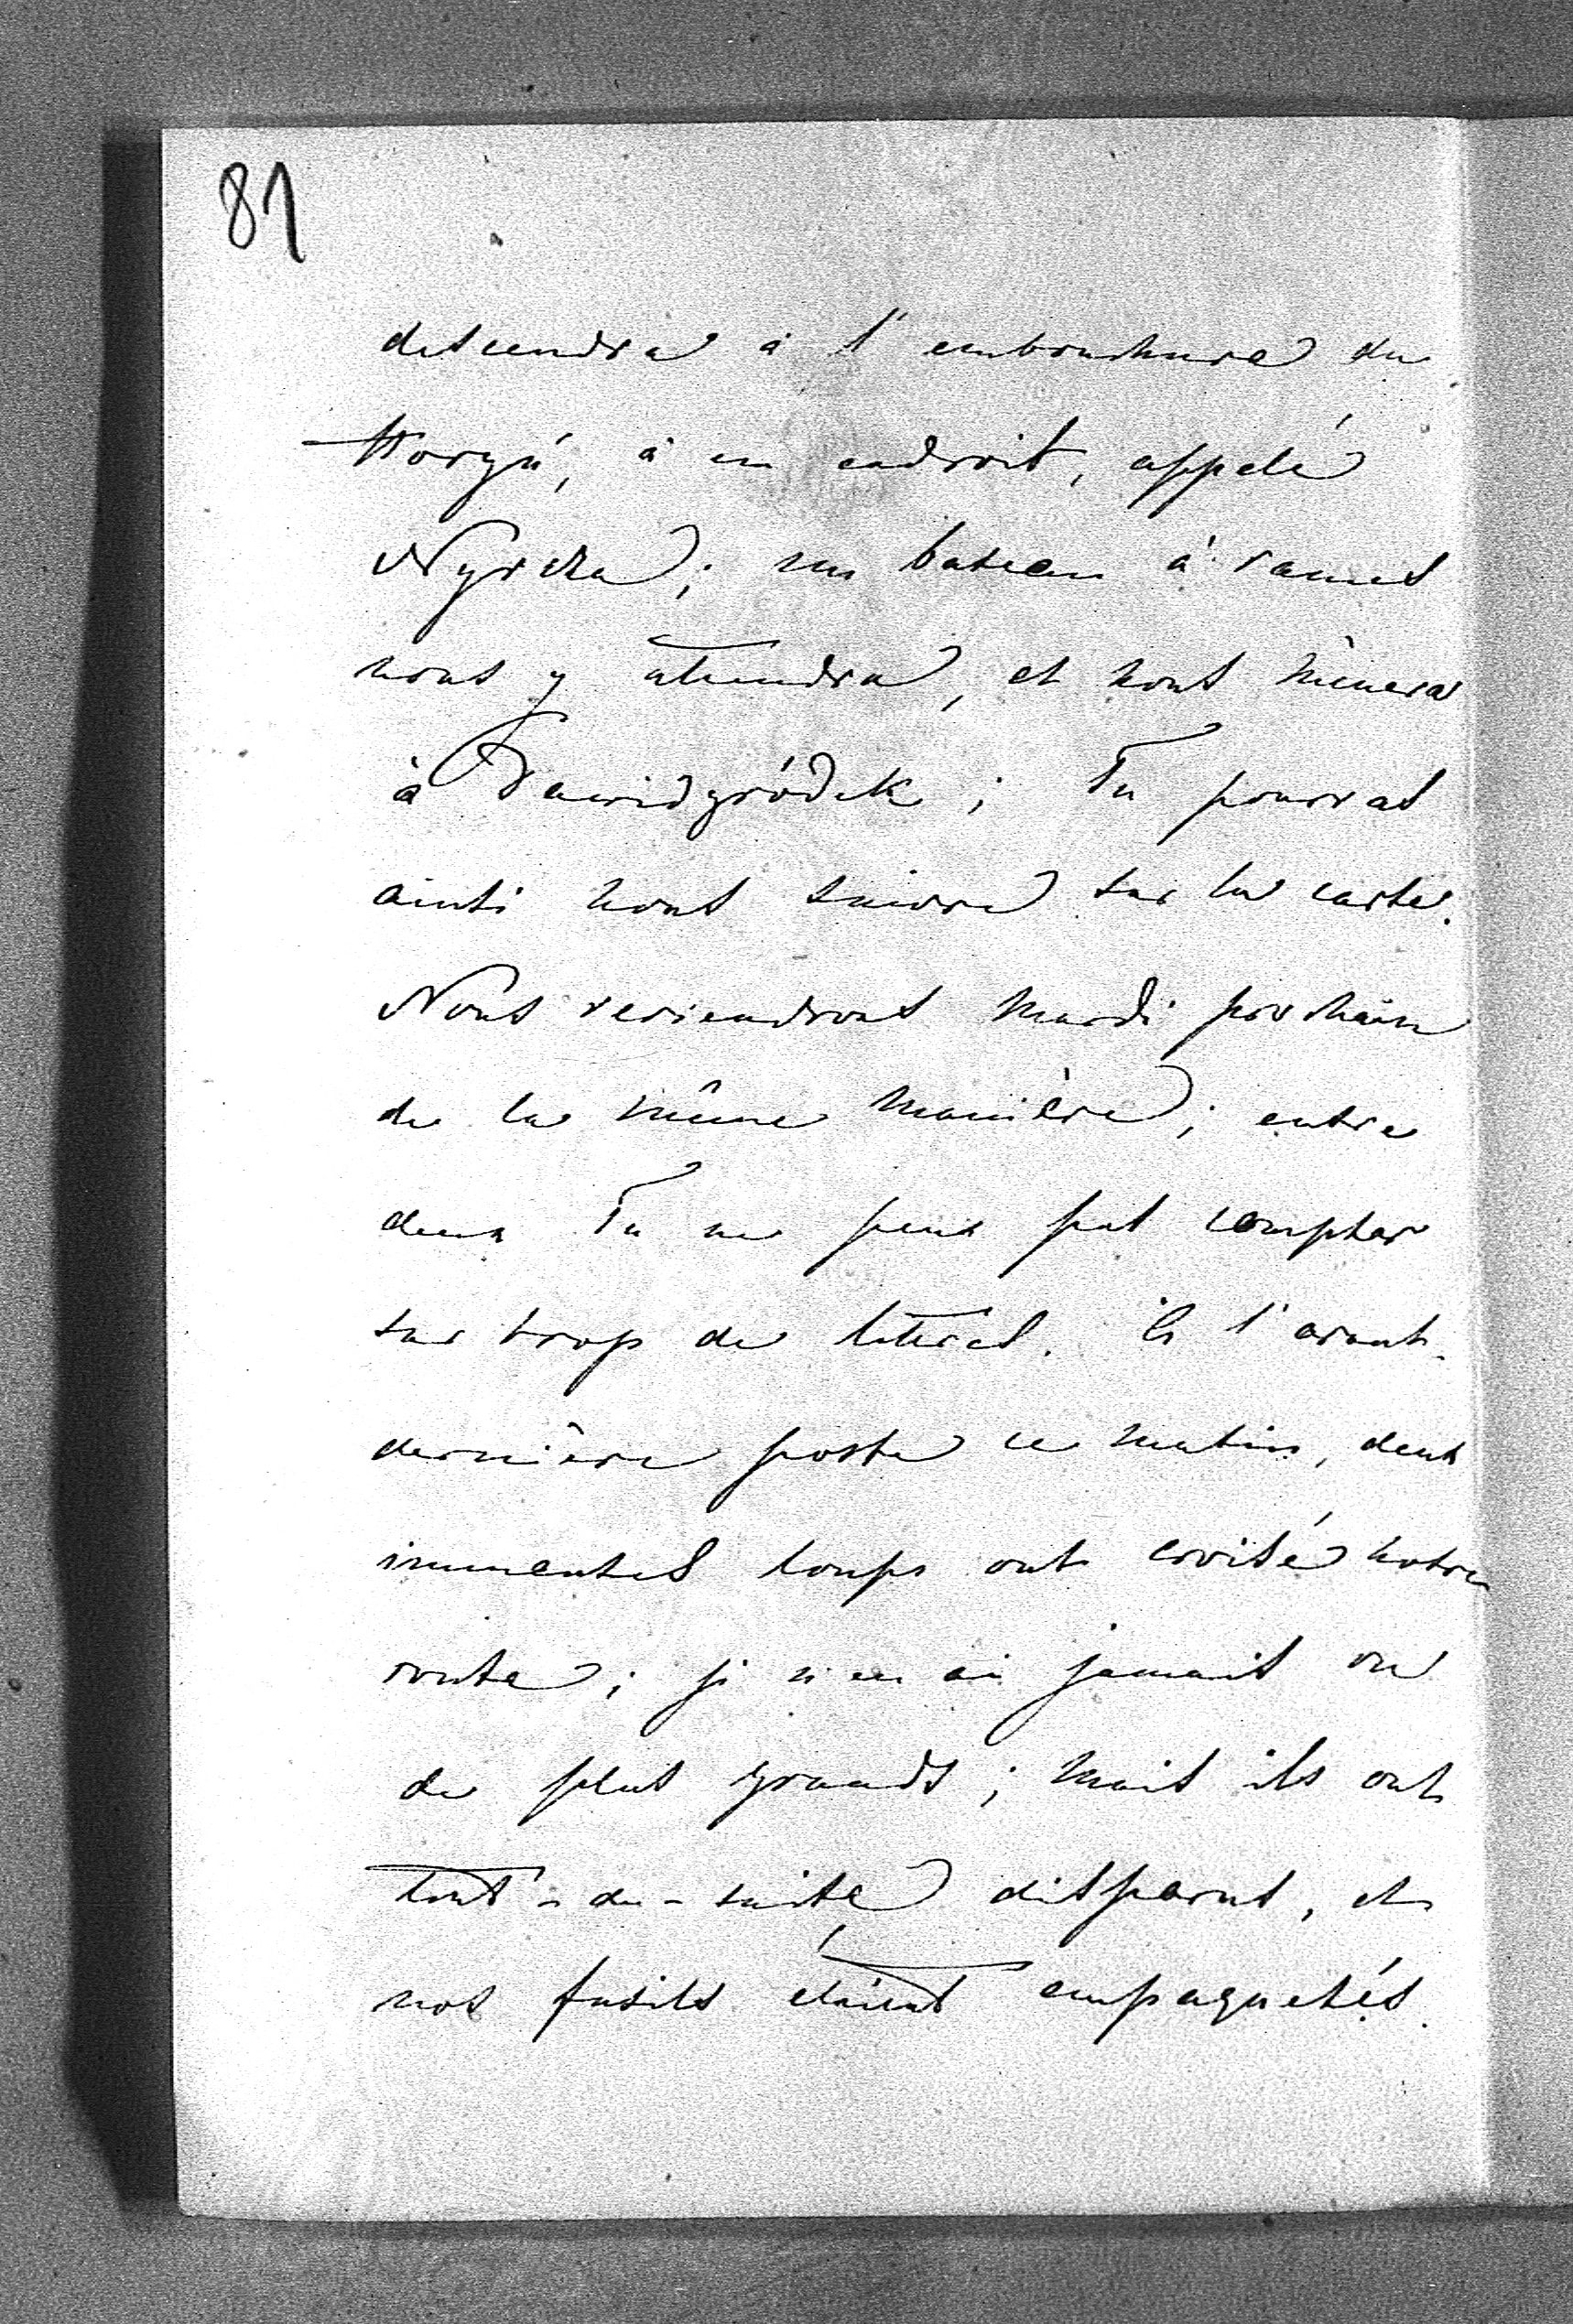 81
descendra à l'embouchure du
Horyń, à un endroit, appelé
Nyrcza; un bateau à rames
nous y attendra, et nous mènera
à Dawidgródek; Tu pourras
ainsi nous suivre sur la carte.
Nous reviendrons mardi prochain
de la même manière; entre
deux Tu ne peux pas compter
sur trop de lettres. A l'avant-
dernière poste ce matin, deux
immenses loups ont croisé notre
route; je n'en ai jamais vu
de plus grands; mais ils ont
tout-de-suite disparus, et
nos fusils étaient empaquetés.